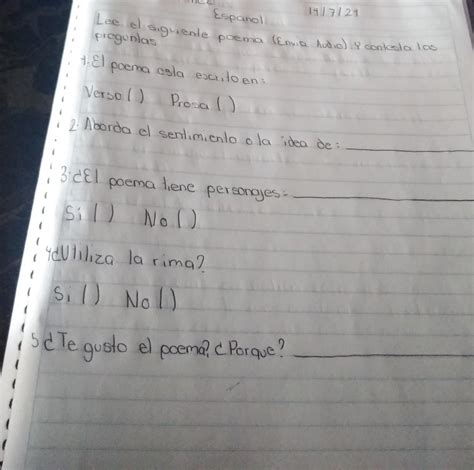 Español 19/7/21
Lee el siguiente poema (Envia Audio) y contesta las
preguntas
1. El poema esta escrito en:
Verso ( ) Prosa ( )
2. Aborda el sentimiento o la idea de: ___
3. ¿El poema tiene personajes: ___
Si ( ) No ( )
4 ¿Utiliza la rima?
Si ( ) No ( )
5 ¿Te gusto el poema? ¿Porque? ___